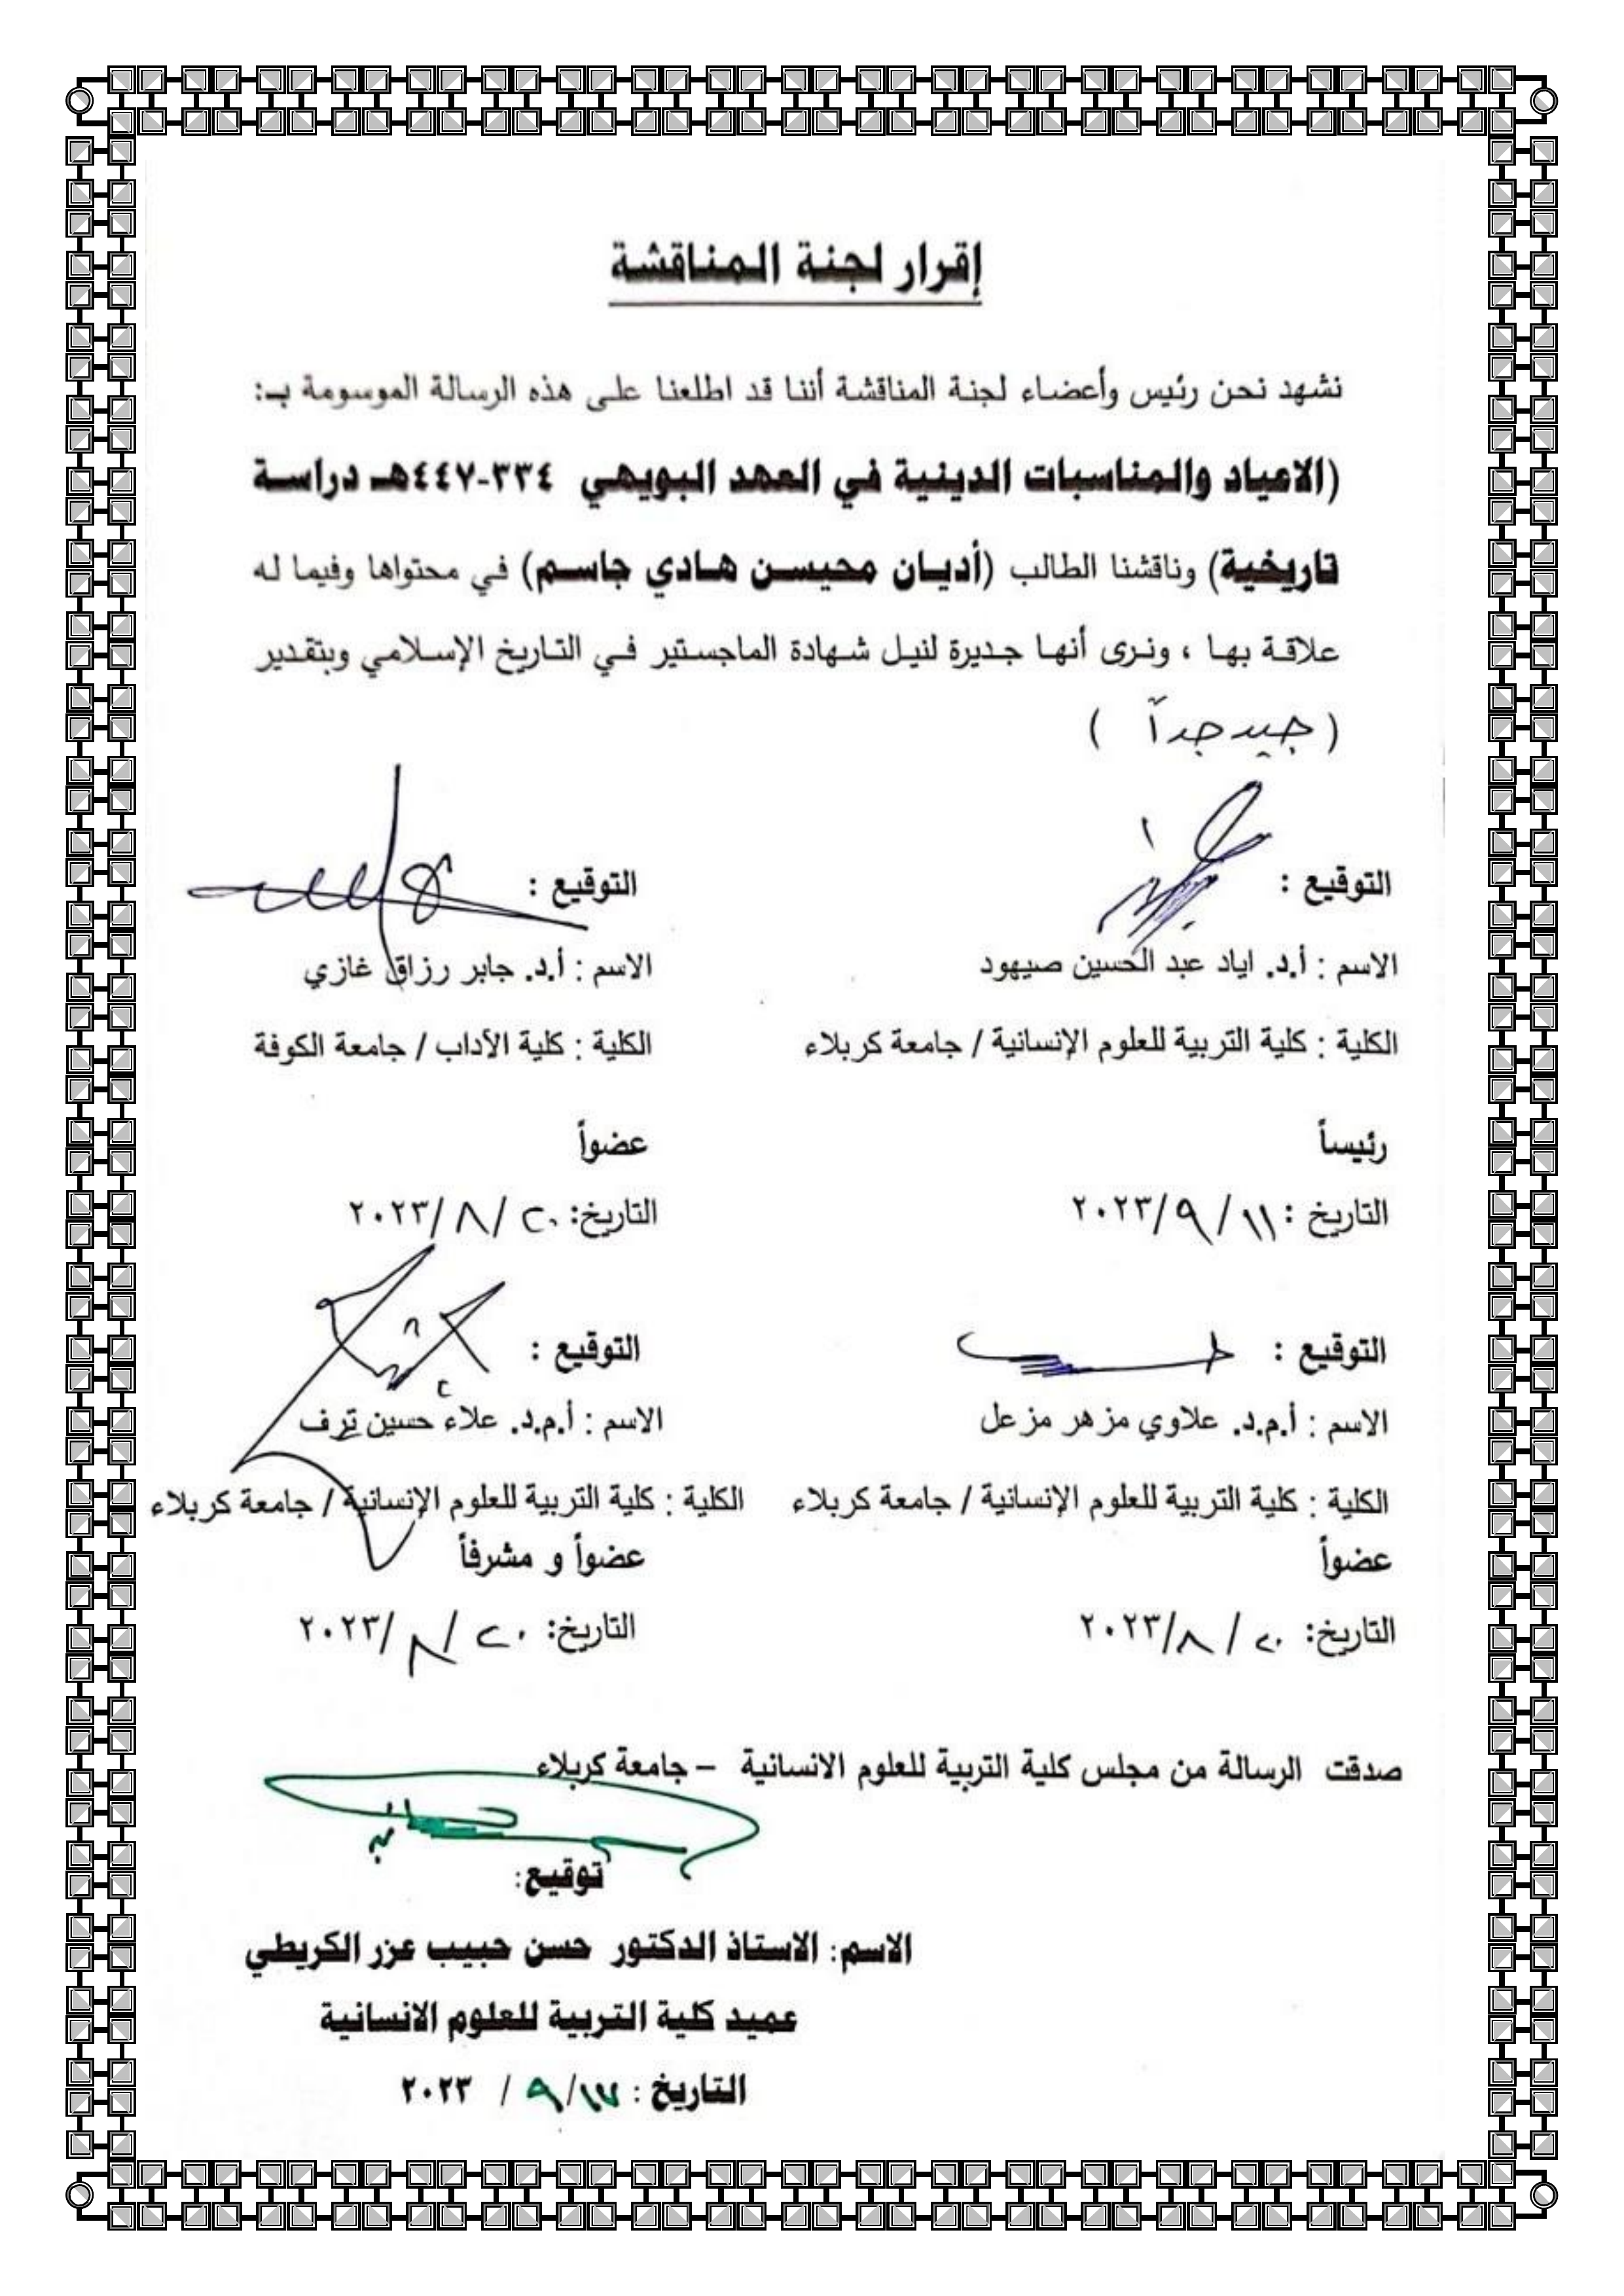 إقرار لجنة المناقشة
نشهد نحن رئيس وأعضاء لجنة المناقشة أننا قد اطلعنا على هذه الرسالة الموسومة بـ:
(الاعياد والمناسبات الدينية في العهد البويهي ٣٣٤-٤٤٧هـ دراسة
تاريخية) وناقشنا الطالب (أديان محيسن هادي جاسم) في محتواها وفيما له
علاقة بها ، ونرى أنها جديرة لنيل شهادة الماجستير في التاريخ الإسلامي وبتقدير
( جيد جداً )
التوقيع :
الاسم : أ.د. اياد عبد الحسين صيهود
الكلية : كلية التربية للعلوم الإنسانية / جامعة كربلاء
رئيساً
التاريخ : ١١/ ٩/ ٢٠٢٣
التوقيع :
الاسم : أ.د. جابر رزاق غازي
الكلية : كلية الأداب / جامعة الكوفة
عضواً
التاريخ: ٢٠/ ٨/ ٢٠٢٣
التوقيع :
الاسم : أ.م.د. علاوي مزهر مزعل
الكلية : كلية التربية للعلوم الإنسانية / جامعة كربلاء
عضواً
التاريخ: ٢٠/ ٨/ ٢٠٢٣
التوقيع :
الاسم : أ.م.د. علاء حسين ترف
الكلية : كلية التربية للعلوم الإنسانية / جامعة كربلاء
عضواً و مشرفاً
التاريخ: ٢٠/ ٨/ ٢٠٢٣
صدقت الرسالة من مجلس كلية التربية للعلوم الانسانية – جامعة كربلاء
توقيع:
الاسم: الاستاذ الدكتور حسن حبيب عزر الكريطي
عميد كلية التربية للعلوم الانسانية
التاريخ : ١٧/ ٩/ ٢٠٢٣